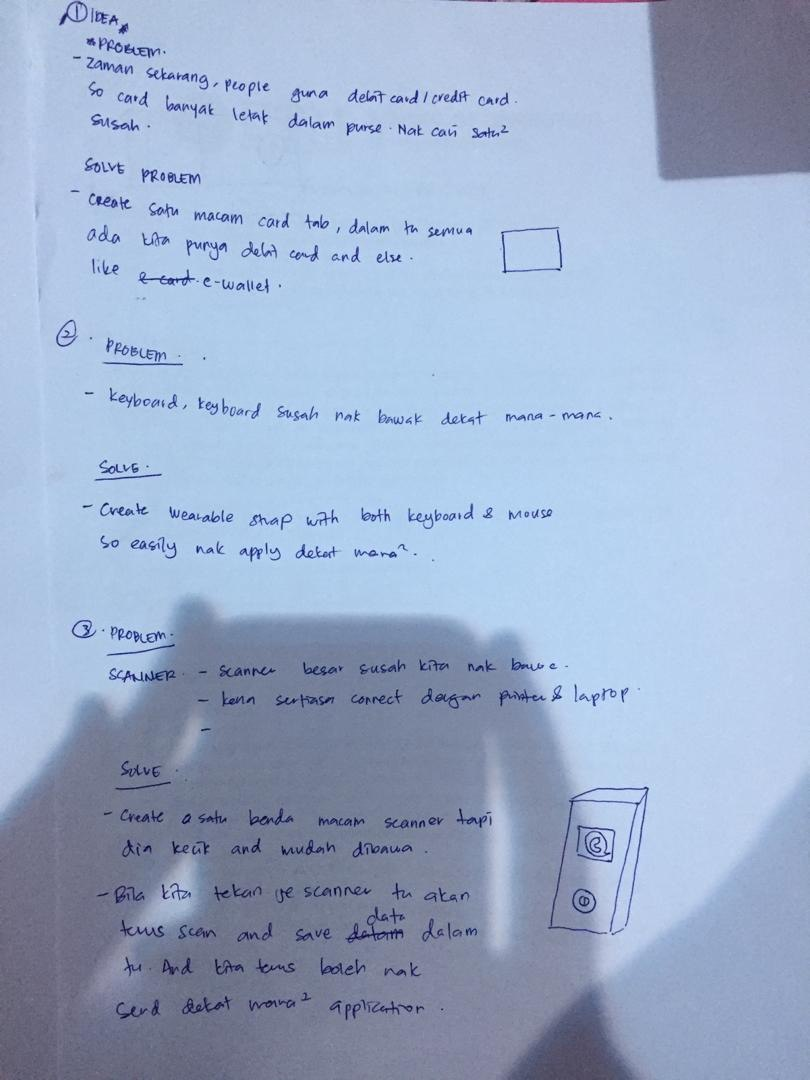 ① IDEA *
* PROBLEM.
- Zaman sekarang, people guna debit card / credit card.
So card banyak letak dalam purse. Nak cari satu²
susah.
SOLVE PROBLEM
- Create satu macam card tab, dalam tu semua
ada kita punya debit card and else.
like e-card. e-wallet.
② .
PROBLEM .
- keyboard, keyboard susah nak bawak dekat mana-mana.
SOLVE.
- Create wearable strap with both keyboard & mouse
so easily nak apply dekat mana².
③. PROBLEM.
SCANNER. - scanner besar susah kita nak bawa.
- kena sentiasa connect dengan printer & laptop.
-
SOLVE .
- Create a satu benda macam scanner tapi
dia kecik and mudah dibawa.
- Bila kita tekan je scanner tu akan
data
terus scan and save dalam dalam
tu. And kita terus boleh nak
send dekat mana² application.
②
①